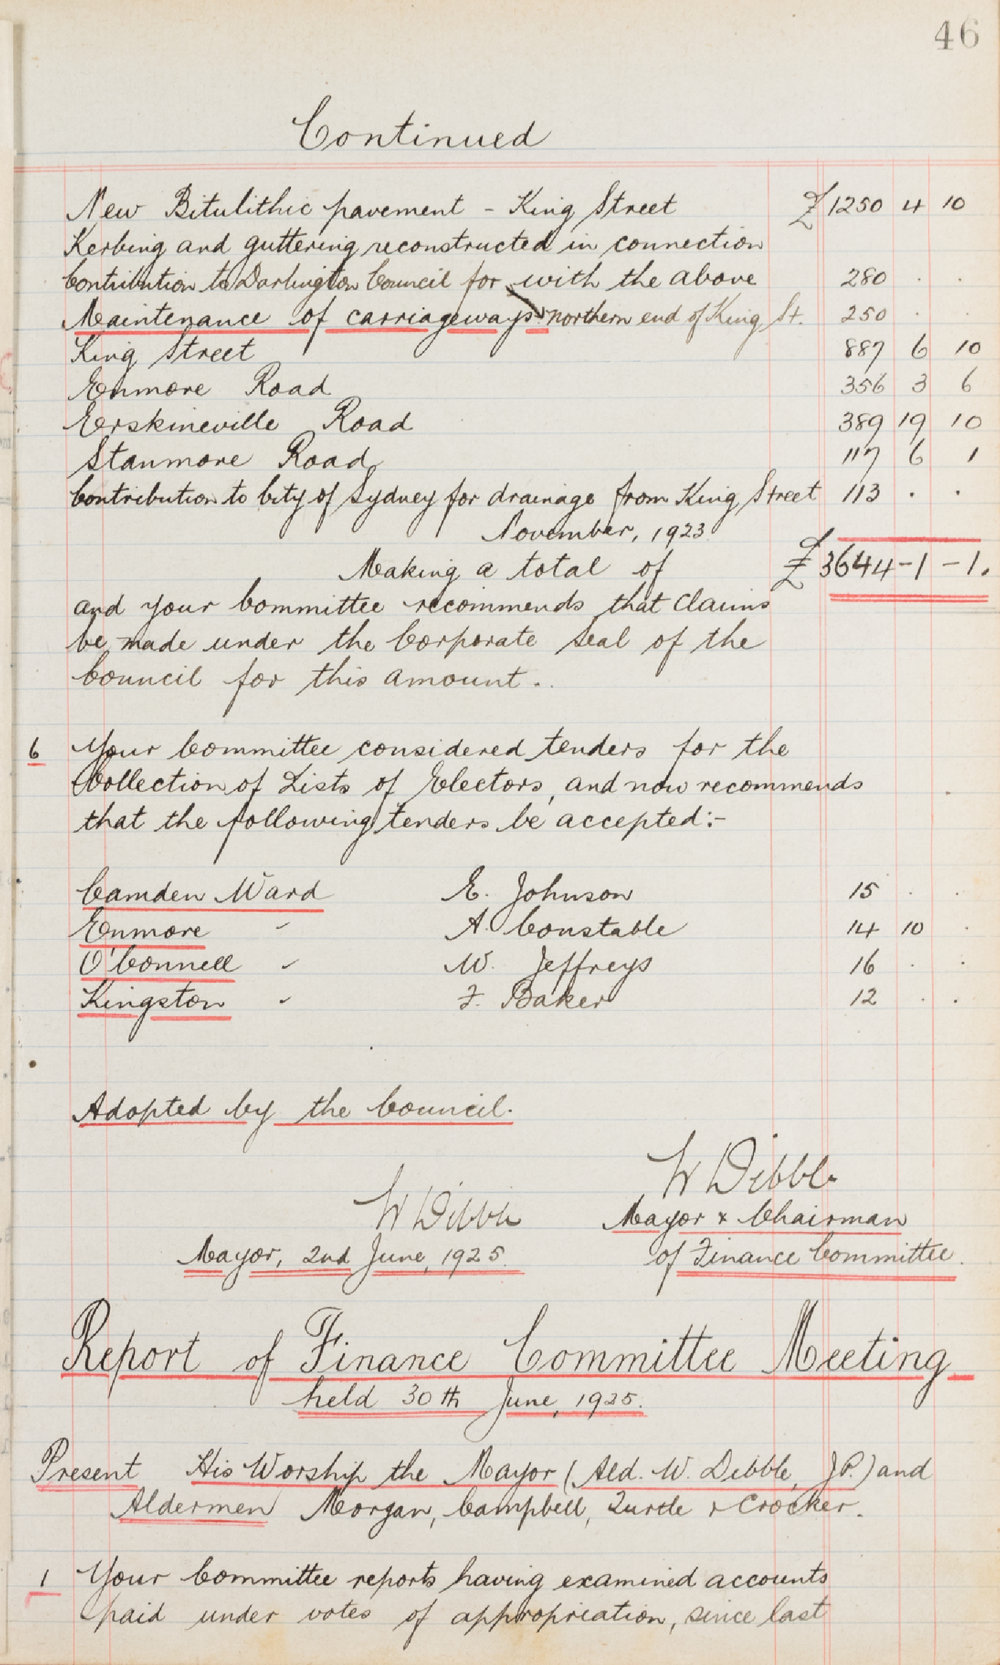 46
Continued
New Bitulithic pavement - King Street £1250 4 10
Kerbing and guttering reconstructed in connection
with the above 280 . .
Contribution to Darlington Council for northern end of King St. 250 .
Maintenance of carriageways:-
King Street 887 6 10
Enmore Road 356 3 6
Erskineville Road 389 19 10
Stanmore Road 117 6 1
Contribution to City of Sydney for drainage from King Street 113 . .
November, 1923
Making a total of £3644-1-1.
and your Committee recommends that claims
be made under the Corporate Seal of the
Council for this amount.
6 Your Committee considered tenders for the
Collection of Lists of Electors, and now recommends
that the following tenders be accepted:-
Camden Ward E. Johnson 15 . .
Enmore " A. Constable 14 10 .
O'Connell " W. Jeffreys 16 . .
Kingston " F. Baker 12 . .
Adopted by the Council.
W Dibble
Mayor & Chairman
of Finance Committee.
W Dibble
Mayor, 2nd June, 1925.
Report of Finance Committee Meeting
held 30th June, 1925.
Present His Worship the Mayor (Ald. W. Dibble, J.P.) and
Aldermen Morgan, Campbell, Turtle & Crocker.
1 Your Committee reports having examined accounts
paid under votes of appropriation, since last